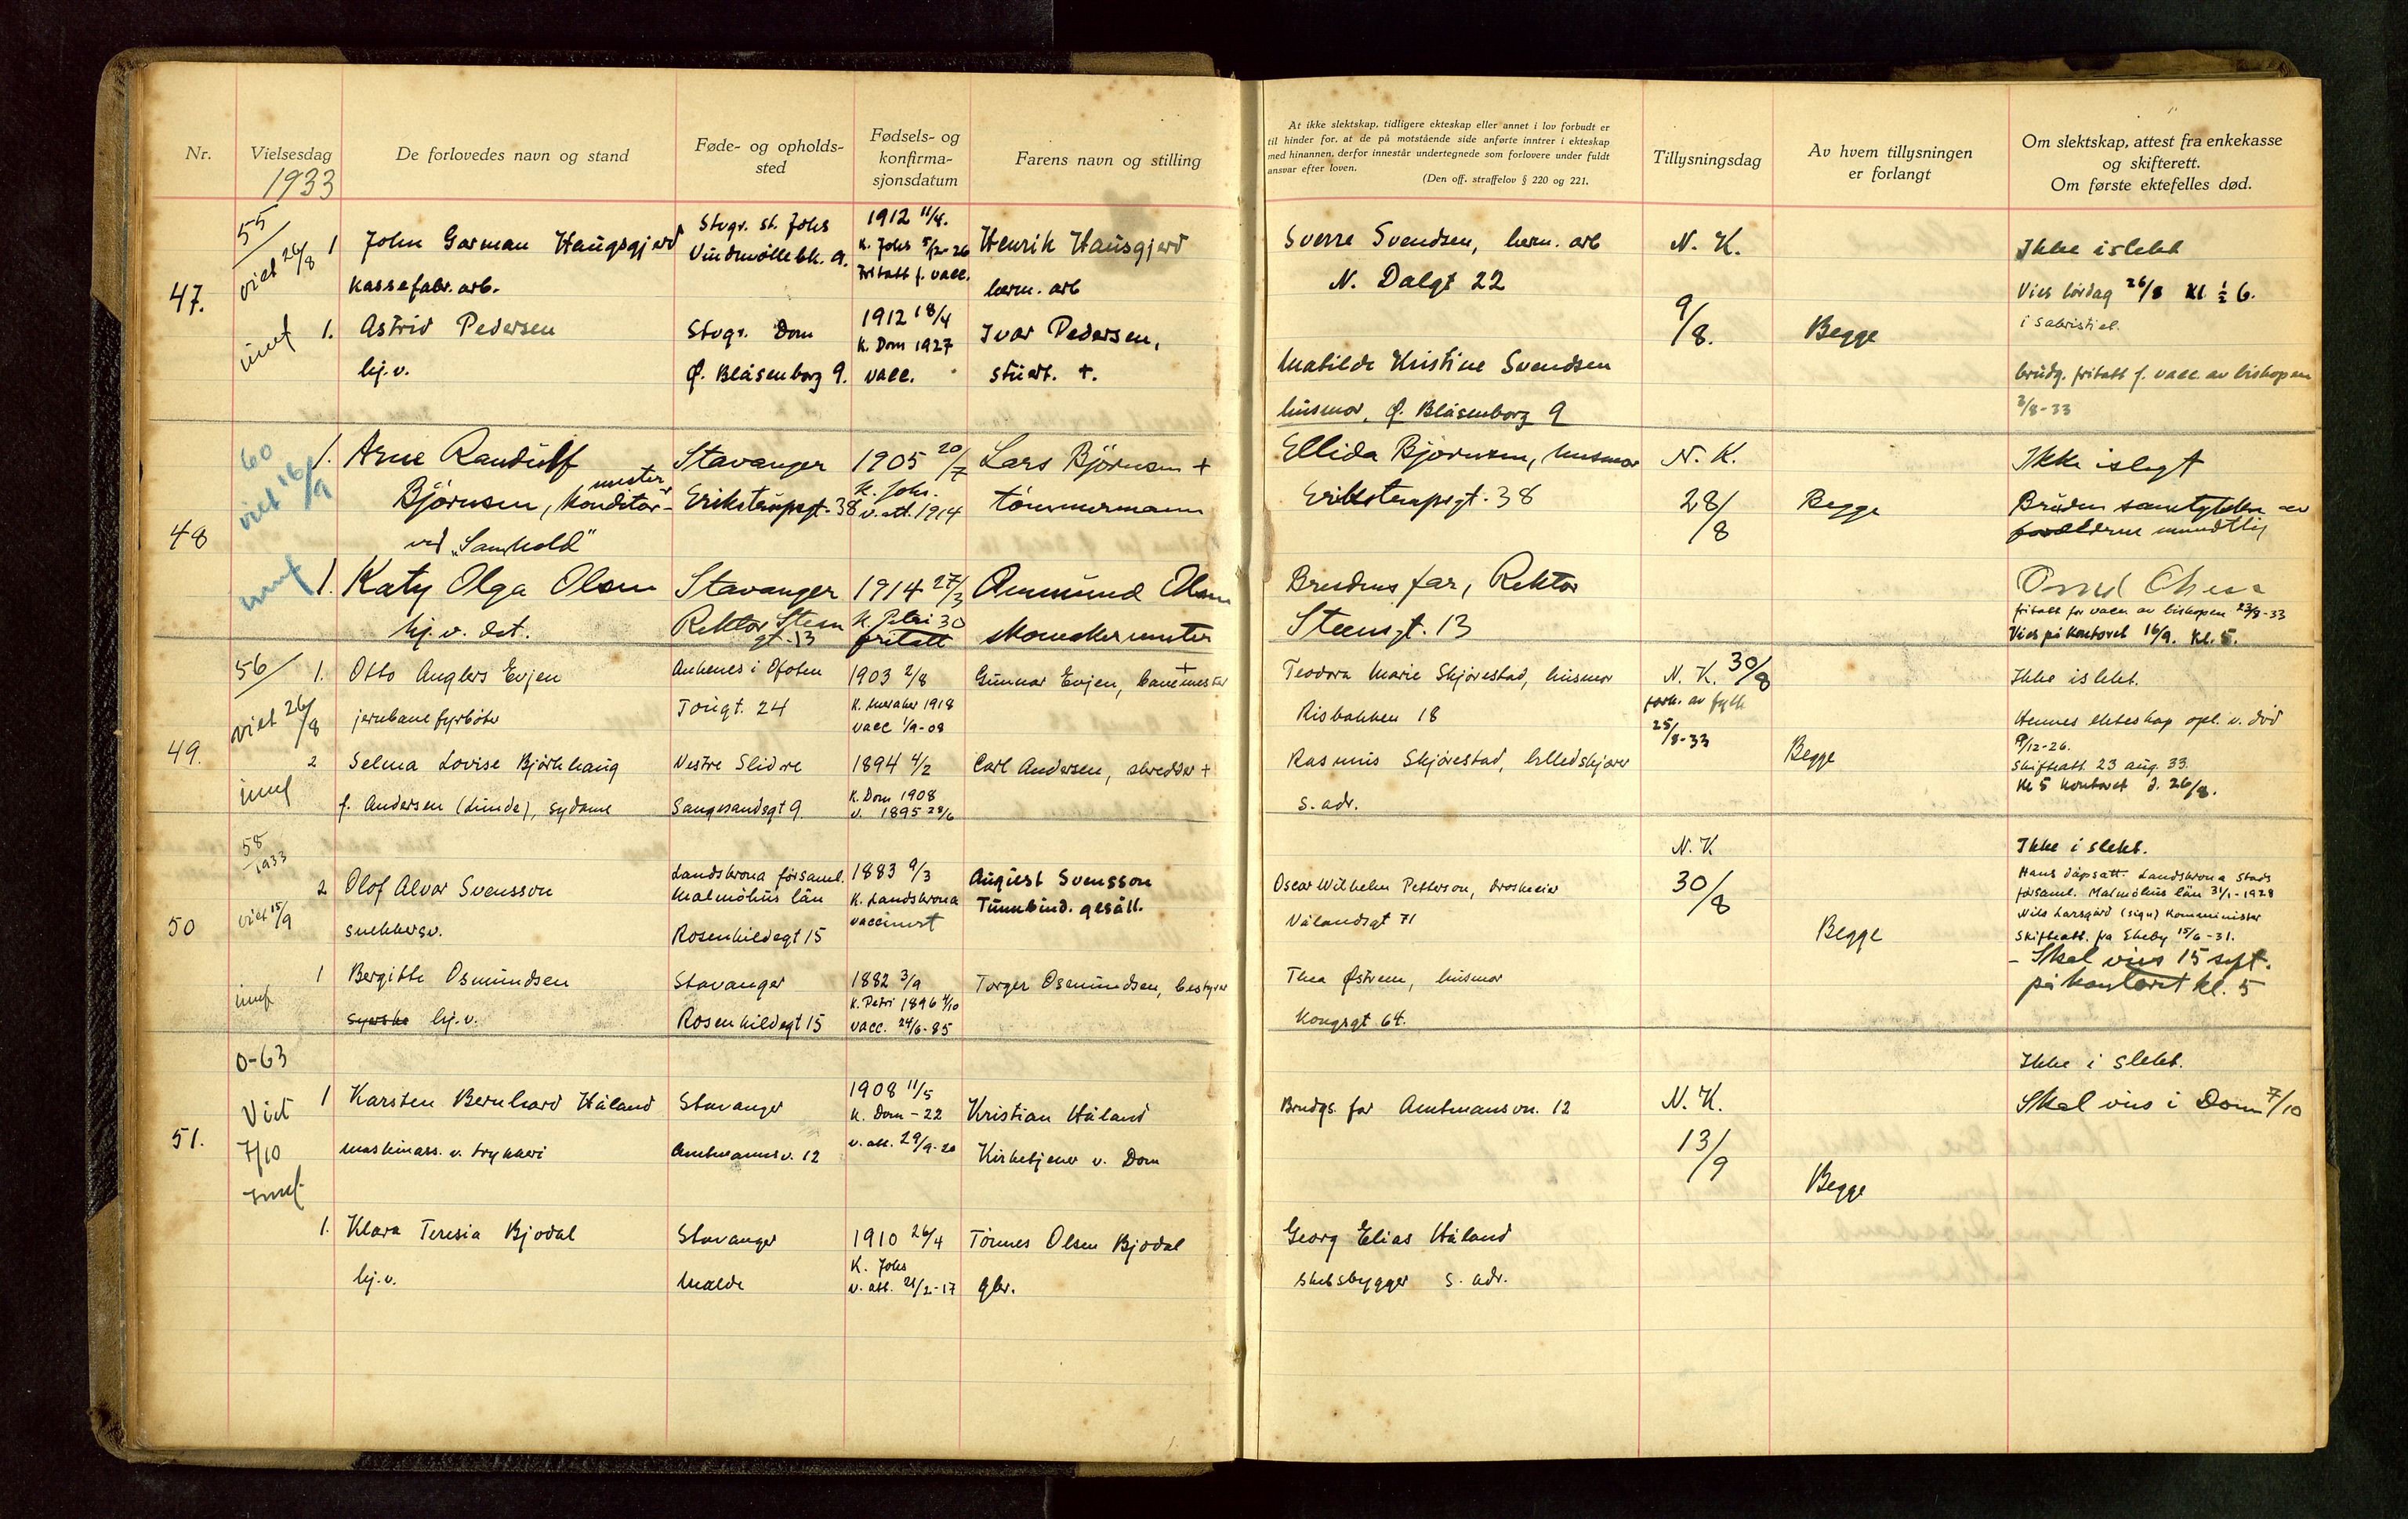 Nr.
Vielsesdag
1933
De forlovedes navn og stand
Føde- og opholds-
sted
Fødsels- og
konfirma-
sjonsdatum
Farens navn og stilling
At ikke slektskap, tidligere ekteskap eller annet i lov forbudt er
til hinder for, at de på motstående side anførte inntrer i ekteskap
med hinannen, derfor innestår undertegnede som forlovere under fuldt
ansvar efter loven.
(Den off. straffelov § 220 og 221.
Tillysningsdag
Av hvem tillysningen
er forlangt
Om slektskap, attest fra enkekasse
og skifterett.
Om første ektefelles død.
47.
55
viet 26/8
innf
1 John Garman Haugsgjerd
kassefabr. arb.
Stvgr. st. Johs
Vindmøllebk. 9.
1912 11/4.
K. Johs 5/12-26
Fritatt f. vacc.
Henrik Hausgjerd
herm. arb
1. Astrid Pedersen
hj.v.
Stvgr. Dom
Ø. Blåsenborg 9.
1912 18/4
K. Dom 1927
vacc.
Ivar Pedersen,
stuert. +.
Sverre Svendsen, herm. arb
N. Dalgt 22
Matilde Kristine Svendsen
husmor, Ø. Blåsenborg 9
N. K.
9/8.
Begge
Ikke i slekt
Vies lørdag 26/8 Kl ½ 6.
i sakristiet.
brudg. fritatt f. vacc. av biskopen
3/8-33
48
60
viet 16/9
innf
1. Arne Randulf
Björnsen, Konditor-
mester
ved "Samhold"
Stavanger
Erikstempsgt. 38
1905 20/7
K. Johs.
v. att. 1914
Lars Björnsen +
tömmermann
1. Katy Olga Olsen
hj. v. det.
Stavanger
Rektor Steen
gt. 13
1914 27/3
K. Petri 30
fritatt
Aumund Olsen
skomakermester
Ellida Björnsen, husmor
Erikstempsgt. 38
Brudens far, Rektor
Steensgt. 13
N. K.
28/8
Begge
Ikke i slegt
Bruden samtykke av
forældrene mundtlig
fritatt for vacc. av biskopen 23/8-33
Vies på kontoret 16/9. Kl. 5.
49.
56
viet 26/8
innf
1. Otto Anglers Evjen
jernbanefyrbøter
Ankenes i Ofoten
Tougt. 24
1903 2/8
K. Meraker 1918
vacc 1/9-08
Gunnar Evjen, banemester +
2 Selma Lovise Björkhaug
f. Andersen (Lunde), sydame
Vestre Slidre
Sangesandsgt 9.
1894 4/2
K. Dom 1908
v. 1895 28/6
Carl Andersen, skredder +
Teodora Marie Skjørestad, husmor
Risbakken 18
Rasmus Skjørestad, billedskjærer
s. adr.
N. K. 30/8
fork. av fylk
25/8-33
Begge
Ikke i slekt.
Hennes ekteskap opl. v. död
9/12-26.
Skifteatt 23 aug. 33.
Kl 5 kontoret d. 26/8.
50
58
1933
viet 15/9
innf
2 Olof Alvar Svensson
snekkersv.
Landskrona församl.
Malmöhus län
Rosenkildegt 15
1883 9/3
K. Landskrona
vaccinert
August Svensson
Tunnbind. gesäll.
1 Bergitte Osmundsen
syerske hj.v.
Stavanger
Rosenkildegt 15
1882 3/9
K. Petri 1896 4/10
vacc. 24/6-85
Torger Osmundsen, bestyrer
Oscar Wilhelm Petterson, droskeeier
Vålandsgt 71
Thea Østrem, husmor
Kongsgt 64.
N. K
30/8
Begge
Ikke i slekt.
Hans dåpsatt. Landskrona Stads
församl. Malmöhus län 31/1-1928
Nils Larsgård (sign) Komminister
Skifteatt. fra Ekeby 15/6-31.
- Skal vies 15 sept.
på kontoret kl. 5
51.
0-63
Viet
7/10
innf.
1 Karsten Bernhard Håland
maskinass. v. trykkeri
Stavanger
Amtmannsv. 12
1908 11/5
K. Dom -22
v. att. 29/9-20
Kristian Håland
Kirketjener v. Dom
1. Klara Teresia Bjodal
hj.v.
Stavanger
Malde
1910 26/4
K. Johs
v. att. 21/2-17
Tönnes Olsen Bjodal
gbr.
Brudgs. far Amtmansvn. 12
Georg Elias Håland
skibsbygger s. adr.
N. K.
13/9
Begge
Ikke i slekt.
Skal vies i Dom 7/10